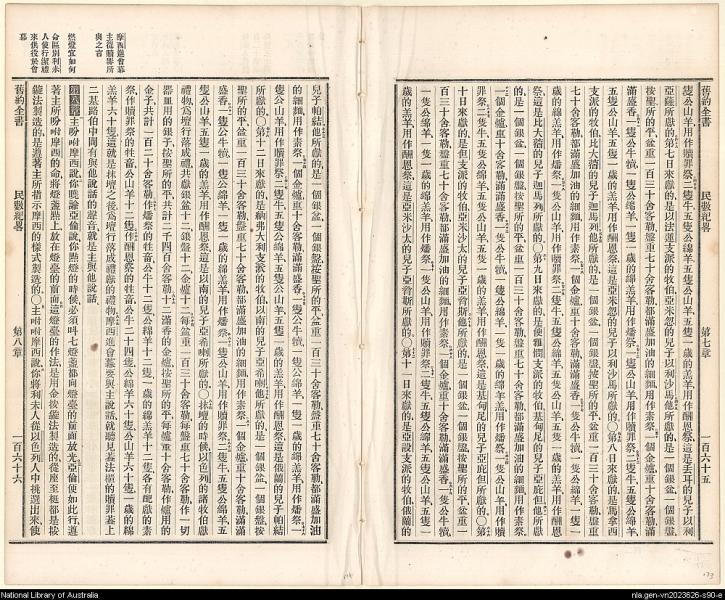 舊約全書 民數紀畧 第七章 一百六十五
隻公山羊用作贖罪祭二隻牛五隻公綿羊五隻公山羊五隻一歲的羔羊用作酬恩祭這是丟耳的兒子以利
亞薩所獻的○第七日來獻的是以法蓮支派的牧伯亞米忽的兒子以利沙馬他所獻的是一個銀盆一個銀盤
按聖所的平盆重一百三十舍客勒盤重七十舍客勒都滿盛加油的細麵用作素祭一個金爐重十舍客勒滿
滿盛香一隻公牛犢一隻公綿羊一隻一歲的綿羔羊用作燔祭一隻公山羊用作贖罪祭二隻牛五隻公綿羊
五隻公山羊五隻一歲的羔羊用作酬恩祭這是亞米忽的兒子以利沙馬所獻的○第八日來獻的是馬拿西
支派的牧伯比大蓿的兒子迦馬列他所獻的是一個銀盆一個銀盤按聖所的平盆重一百三十舍客勒盤重
七十舍客勒都滿盛加油的細麵用作素祭一個金爐重十舍客勒滿滿盛香一隻公牛犢一隻公綿羊一隻一
歲的綿羔羊用作燔祭一隻公山羊用作贖罪祭二隻牛五隻公綿羊五隻公山羊五隻一歲的羔羊用作酬恩
祭這是比大蓿的兒子迦馬列所獻的○第九日來獻的是便雅憫支派的牧伯基甸尼的兒子亞庇但他所獻
的是一個銀盆一個銀盤按聖所的平盆重一百三十舍客勒盤重七十舍客勒都滿盛加油的細麵用作素祭
一個金爐重十舍客勒滿滿盛香一隻公牛犢一隻公綿羊一隻一歲的綿羔羊用作燔祭一隻公山羊用作贖
罪祭二隻牛五隻公綿羊五隻公山羊五隻一歲的羔羊用作酬恩祭這是基甸尼的兒子亞庇但所獻的○第
十日來獻的是但支派的牧伯亞米沙太的兒子亞背斯他所獻的是一個銀盆一個銀盤按聖所的平盆重一
百三十舍客勒盤重七十舍客勒都滿盛加油的細麵用作素祭一個金爐重十舍客勒滿滿盛香一隻公牛犢
一隻公綿羊一隻一歲的綿羔羊用作燔祭一隻公山羊用作贖罪祭二隻牛五隻公綿羊五隻公山羊五隻一
歲的羔羊用作酬恩祭這是亞米沙太的兒子亞背斯所獻的○第十一日來獻的是亞設支派的牧伯俄蘭的
兒子帕結他所獻的是一個銀盆一個銀盤按聖所的平盆重一百三十舍客勒盤重七十舍客勒都滿盛加油
的細麵用作素祭一個金爐重十舍客勒滿滿盛香一隻公牛犢一隻公綿羊一隻一歲的綿羔羊用作燔祭一
隻公山羊用作贖罪祭二隻牛五隻公綿羊五隻公山羊五隻一歲的羔羊用作酬恩祭這是俄蘭的兒子帕結
所獻的○第十二日來獻的是納弗大利支派的牧伯以南的兒子亞希喇他所獻的是一個銀盆一個銀盤按
聖所的平盆重一百三十舍客勒盤重七十舍客勒都滿盛加油的細麵用作素祭一個金爐重十舍客勒滿滿
盛香一隻公牛犢一隻公綿羊一隻一歲的綿羔羊用作燔祭一隻公山羊用作贖罪祭二隻牛五隻公綿羊五
隻公山羊五隻一歲的羔羊用作酬恩祭這是以南的兒子亞希喇所獻的○抹壇的時候以色列的諸牧伯獻
禮物爲壇行落成禮共獻銀盆十二銀盤十二金爐十二每盆重一百三十舍客勒每盤重七十舍客勒作一切
器皿用的銀子按聖所的平共計二千四百舍客勒十二滿香的金爐按聖所的平每爐重十舍客勒作爐用的
金子共計一百二十舍客勒作燔祭的牲畜公牛十二隻公綿羊十二隻一歲的綿羔羊十二隻各有應獻的素
祭作贖罪祭的公山羊十二隻作酬恩祭的牲畜公牛二十四隻公綿羊六十隻公山羊六十隻一歲的綿
羔羊六十隻這就是抹壇之後爲壇行落成禮獻的禮物摩西進會幕要與主說話就聽見蓋法櫃的贖罪蓋上
二基路伯中間有與他說話的聲音就是主與他說話
第八章 主吩咐摩西說你曉諭亞倫說你點燈的時候必須叫七燈盞都向燈臺的前面放光亞倫便如此行遵
著主所吩咐摩西的命將燈盞點上放在燈臺的前面這燈臺的作法是用金按鎚法製造的從座至梃都是按
鎚法製造的是遵著主所指示摩西的樣式製造的○主吩咐摩西說你將利未人從以色列人中挑選出來使
舊約全書 民數紀畧 第八章 一百六十六
摩西進會幕
主從贖罪所
與之言
燃燈宜如何
命區別利未
人使行潔禮
來供役於會
幕
National Library of Australia
nla.gen-vn2023626-s90-e